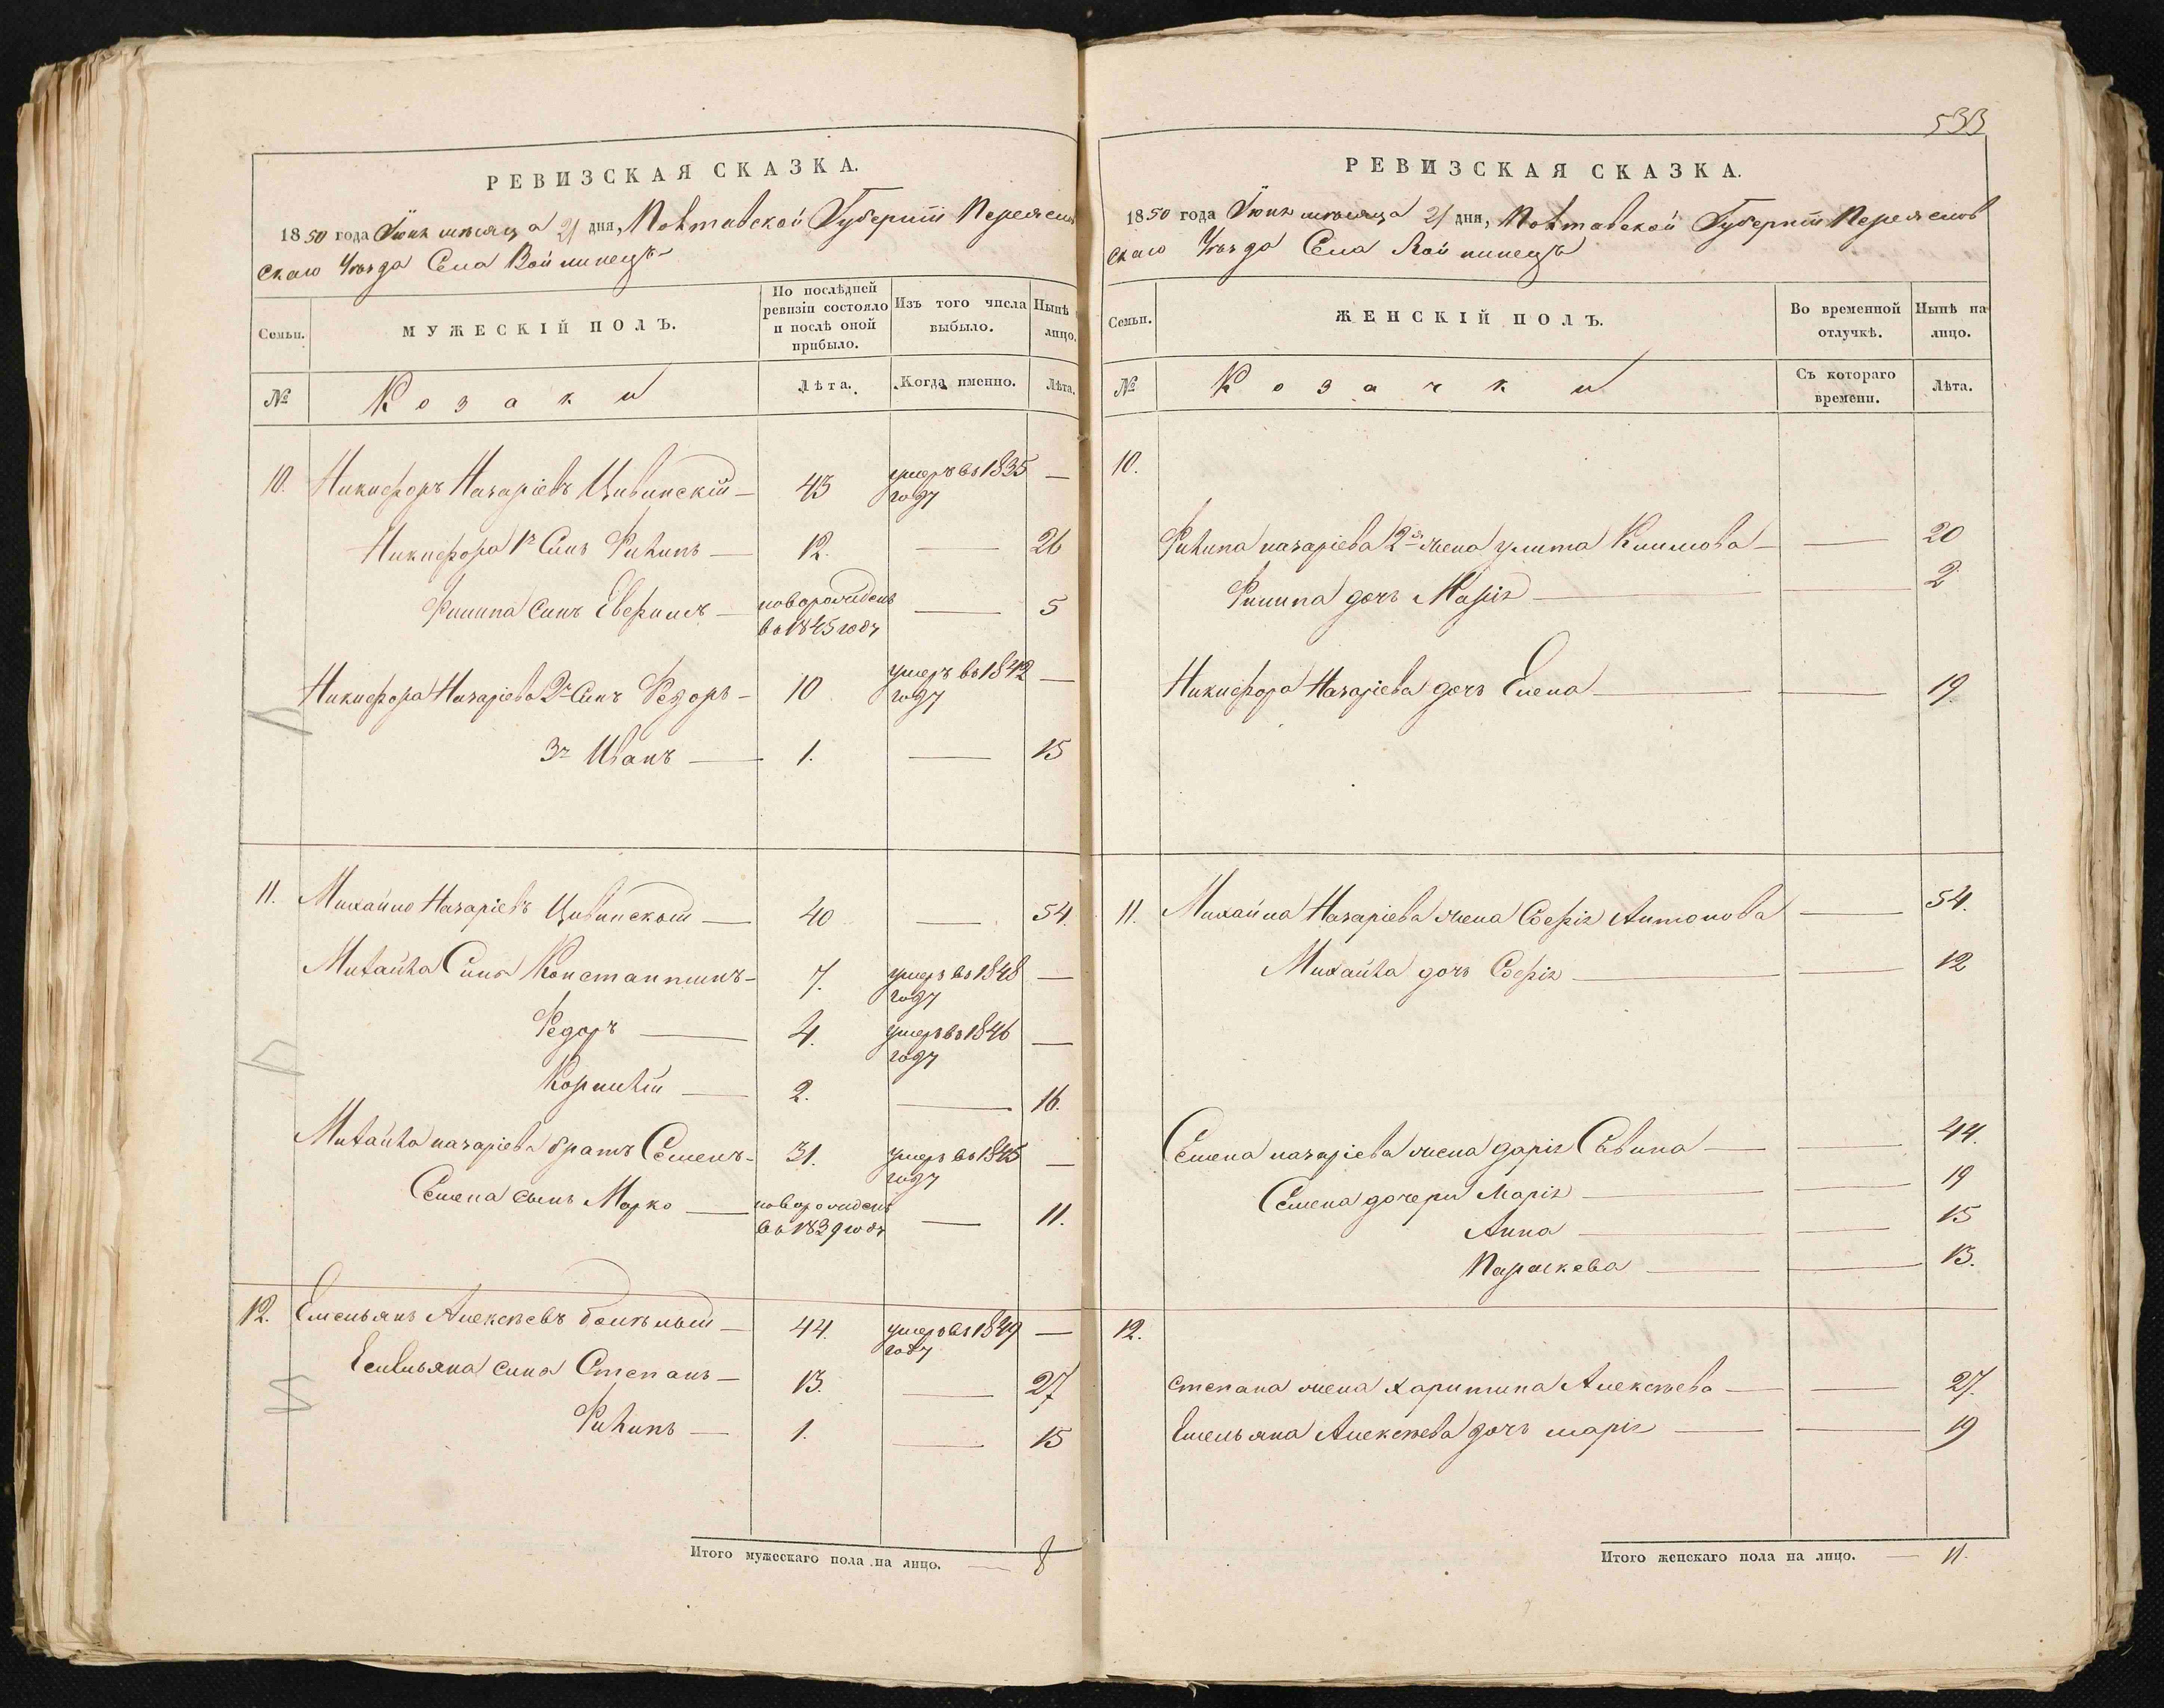 РЕВИЗСКАЯ СКАЗКА.
1850 года Іюня мѣсяца 21 дня, Полтавской Губерніи Переяслов
скаго Уѣзда Села Войтинецъ
Семьи.
МУЖЕСКІЙ ПОЛЪ.
По послѣдней ревизіи состояло и послѣ оной прибыло.
Изъ того числа выбыло.
Нынѣ лицо.
№
Козаки
Лѣта.
Когда именно.
Лѣта.
10. Никифоръ Назаріевъ Цивинскій — 43 умеръ въ 1835 году —
Никифора 1й Синъ Филипъ — 12. — 26
Филипа синъ Еверима — новорожденъ въ 1845 году — 5
Никифора Назаріева 2й Синъ Федоръ — 10 умеръ въ 1842 году —
3й Иванъ — 1. — 15
11. Михайло Назаріевъ Цивинской — 40 — 54.
Михайла Сина Константинъ — 7. умеръ въ 1848 году —
Федоръ — 4. умеръ въ 1846 году —
Корнилій — 2. — 16.
Михайла назаріева братъ Семенъ — 31. умеръ въ 1845 году —
Семена сынъ Марко — новорожденъ въ 1839 году — 11.
12. Емельянъ Алексѣевъ — 44. умеръ въ 1849 году —
Емельяна сина Степанъ — 13. — 27
Филипъ — 1. — 15
Итого мужескаго пола на лицо. — 8
533
РЕВИЗСКАЯ СКАЗКА.
1850 года Іюня мѣсяца 21 дня, Полтавской Губерніи Переяслов
скаго Уѣзда Села Войтинецъ
Семьи.
ЖЕНСКІЙ ПОЛЪ.
Во временной отлучкѣ.
Нынѣ на лицо.
№
Козачки
Съ котораго времени.
Лѣта.
10.
Филипа назаріева 2я жена улита Климова — — 20
Филипа дочь Марія — — 2
Никифора Назаріева дочь Елена — — 19.
11. Михайла Назаріева жена Софія Антонова — 54.
Михайла дочь Софія — — 12
Семена назаріева жена дарія Савина — — 44.
Семена дочери Марія — — 19
Анна — — 15
Параскева — — 13.
12.
Степана жена Харитина Алексѣева — — 27.
Емельяна Алексѣева дочь марія — — 19
Итого женскаго пола на лицо. — 11.